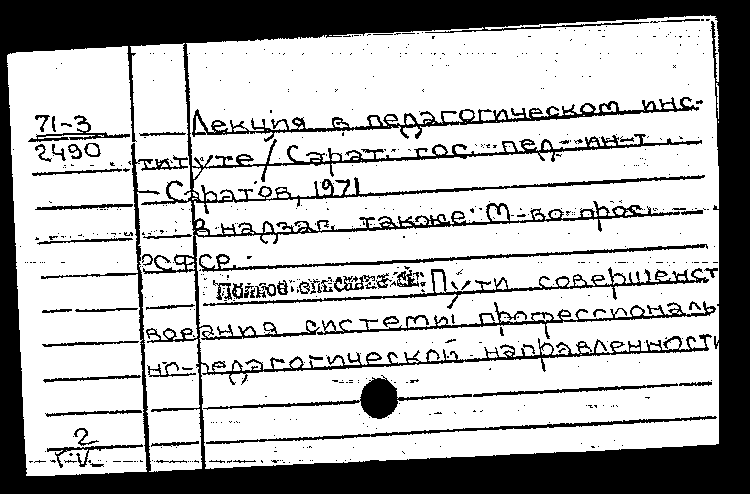 71-3
2490
Лекция в педагогическом инс-
титуте / Сарат. гос. пед. ин-т.
- Саратов, 1971
В надзаг. также: М-во прос.
РСФСР.
Полное описание см.: Пути совершенст
вования системы профессиональ
но-педагогической направленности
2